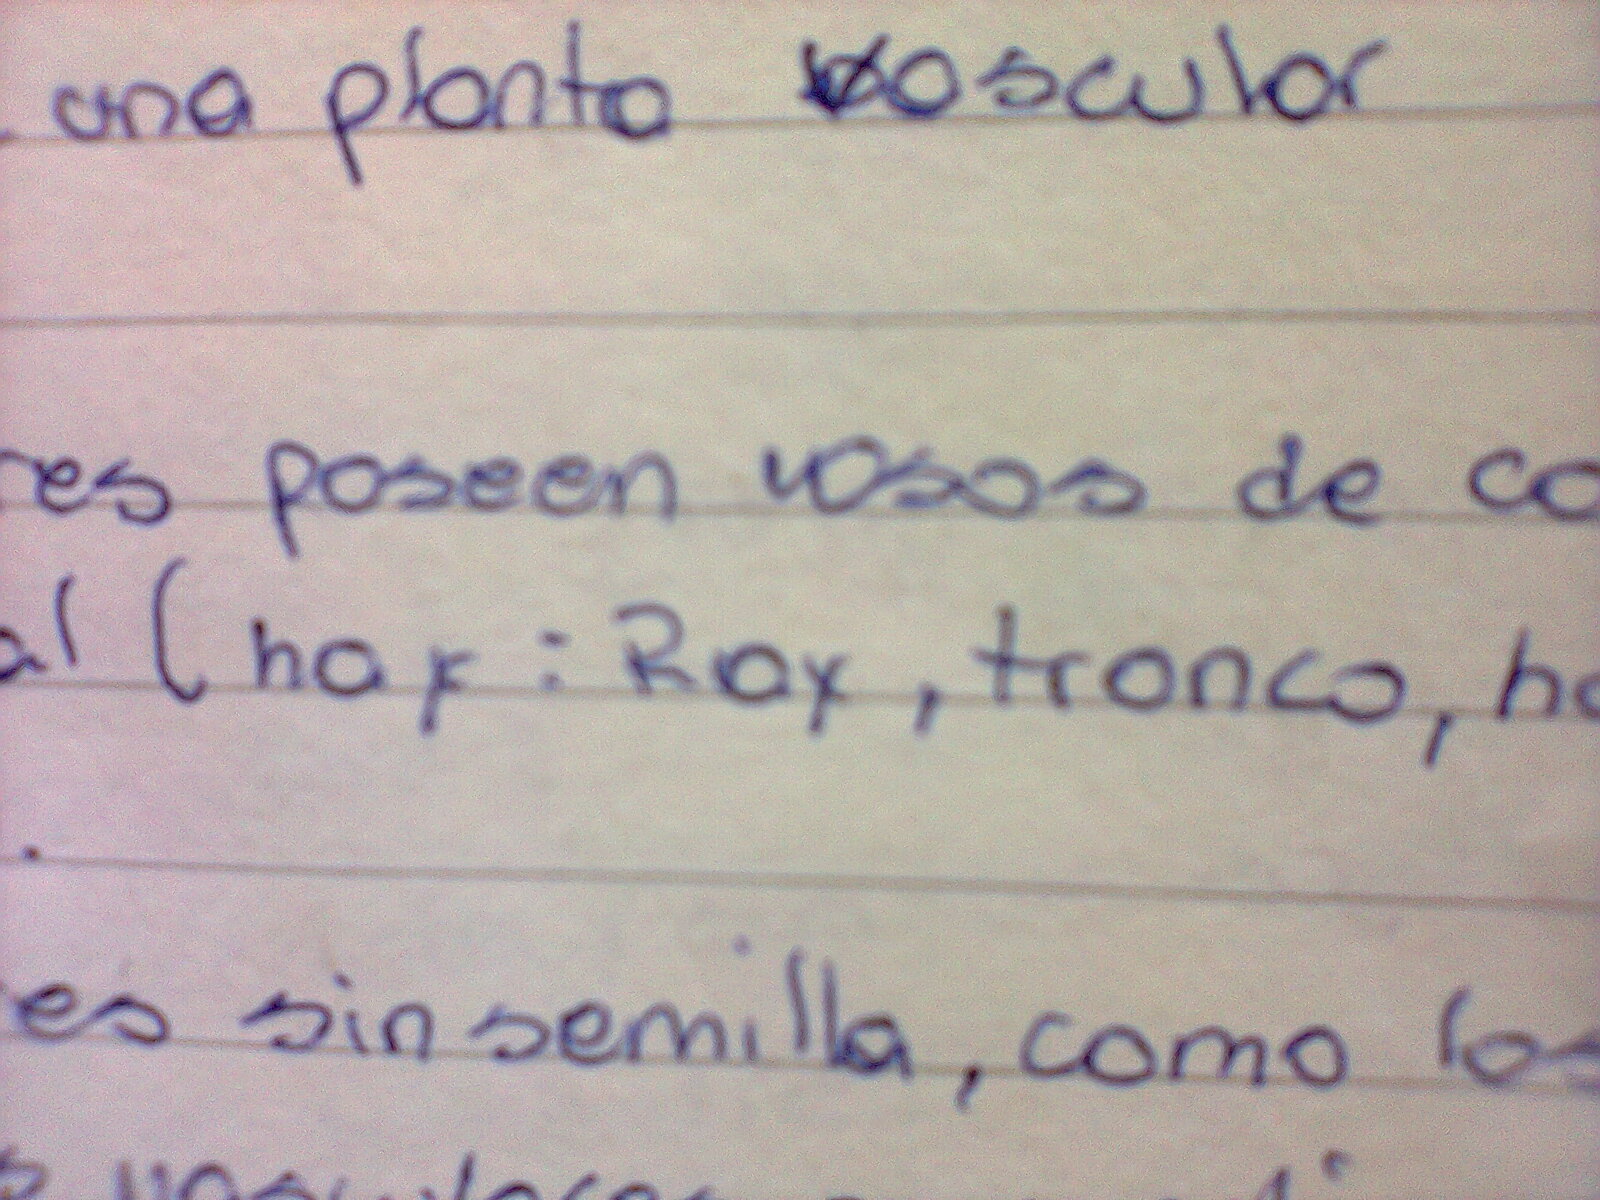 una planta vascular
res poseen vasos de co
al (hay: Ray, tronco, ho
.
es sin semilla, como los
s vasculares